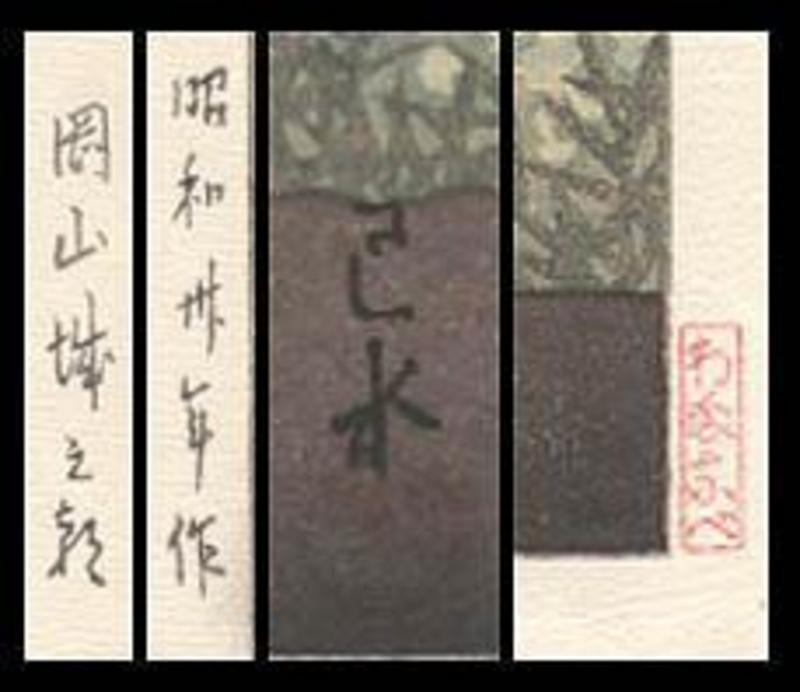 岡山城之朝
昭和卅年作
巴水
わたなべ